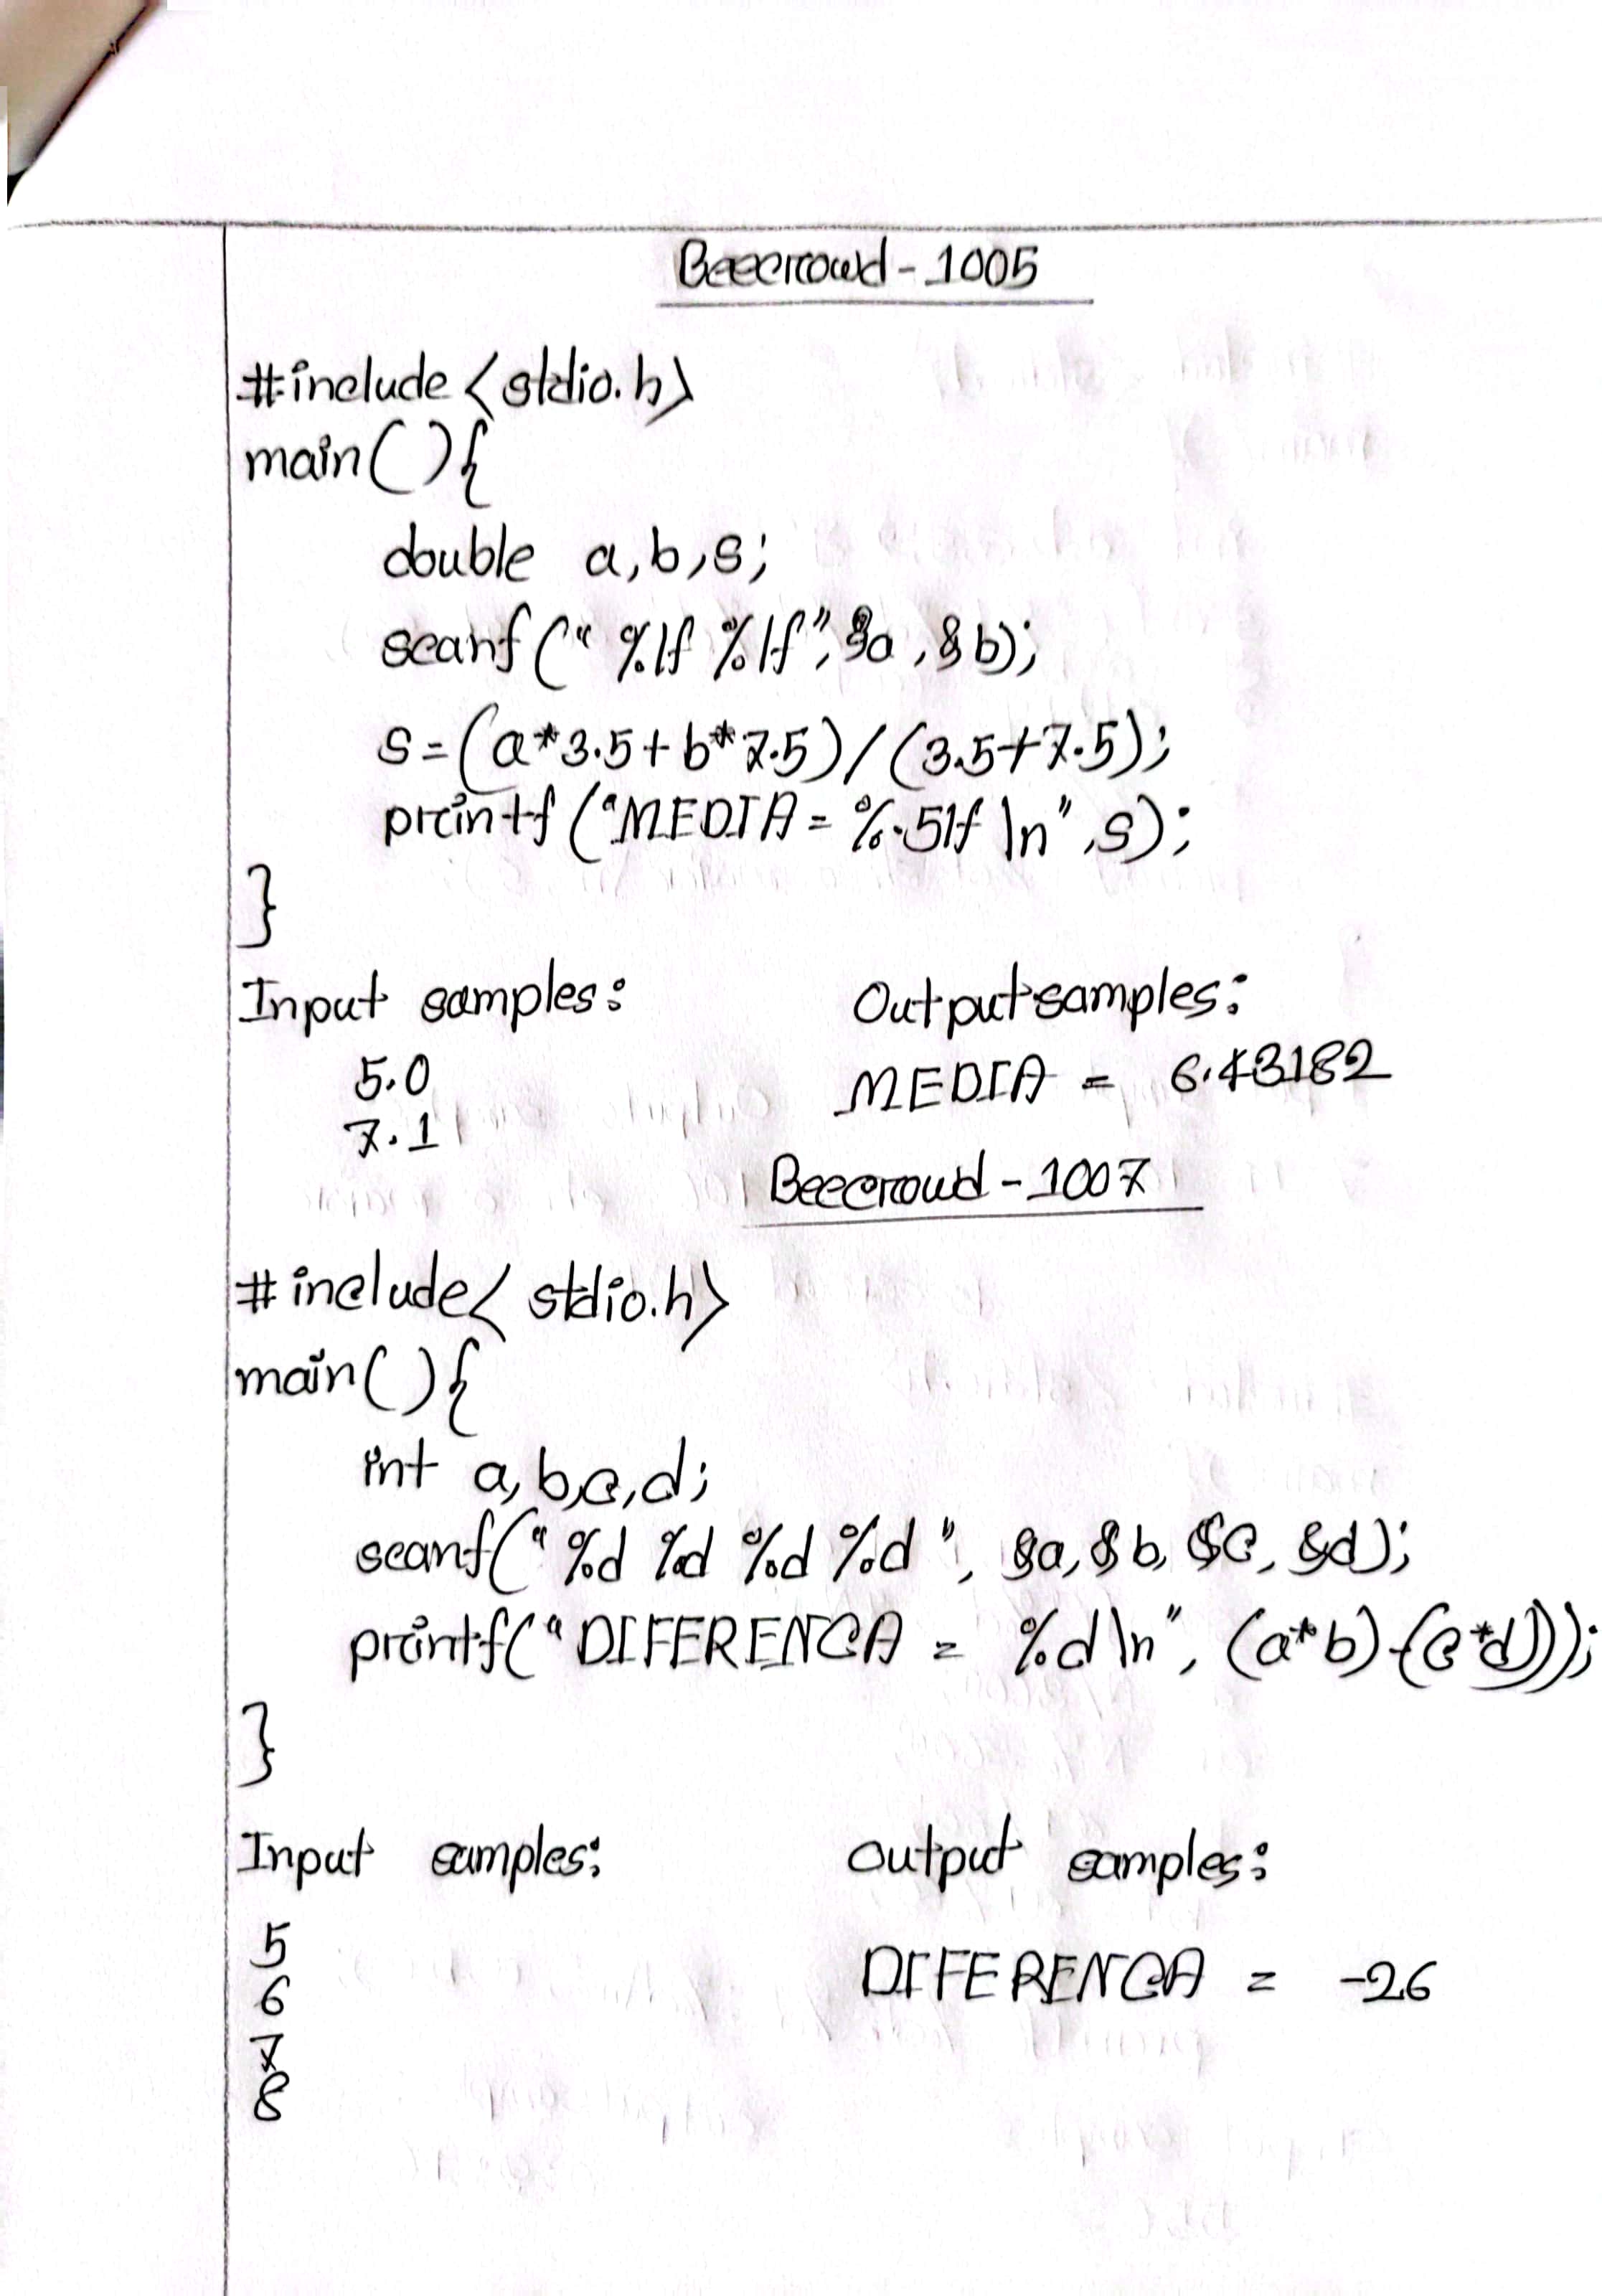 Beecrowd - 1005
#include <stdio.h>
main(){
double a,b,s;
scanf("%lf %lf",&a,&b);
s=(a*3.5+b*7.5)/(3.5+7.5);
printf("MEDIA = %.5lf \n",s);
}
Input samples: Output samples:
5.0 MEDIA = 6.43182
7.1
Beecrowd - 1007
#include< stdio.h>
main(){
int a,b,c,d;
scanf("%d %d %d %d", &a,&b,&c,&d);
printf("DIFERENCA = %d\n", (a*b)-(c*d));
}
Input samples: output samples:
5
6 DIFERENCA = -26
7
8